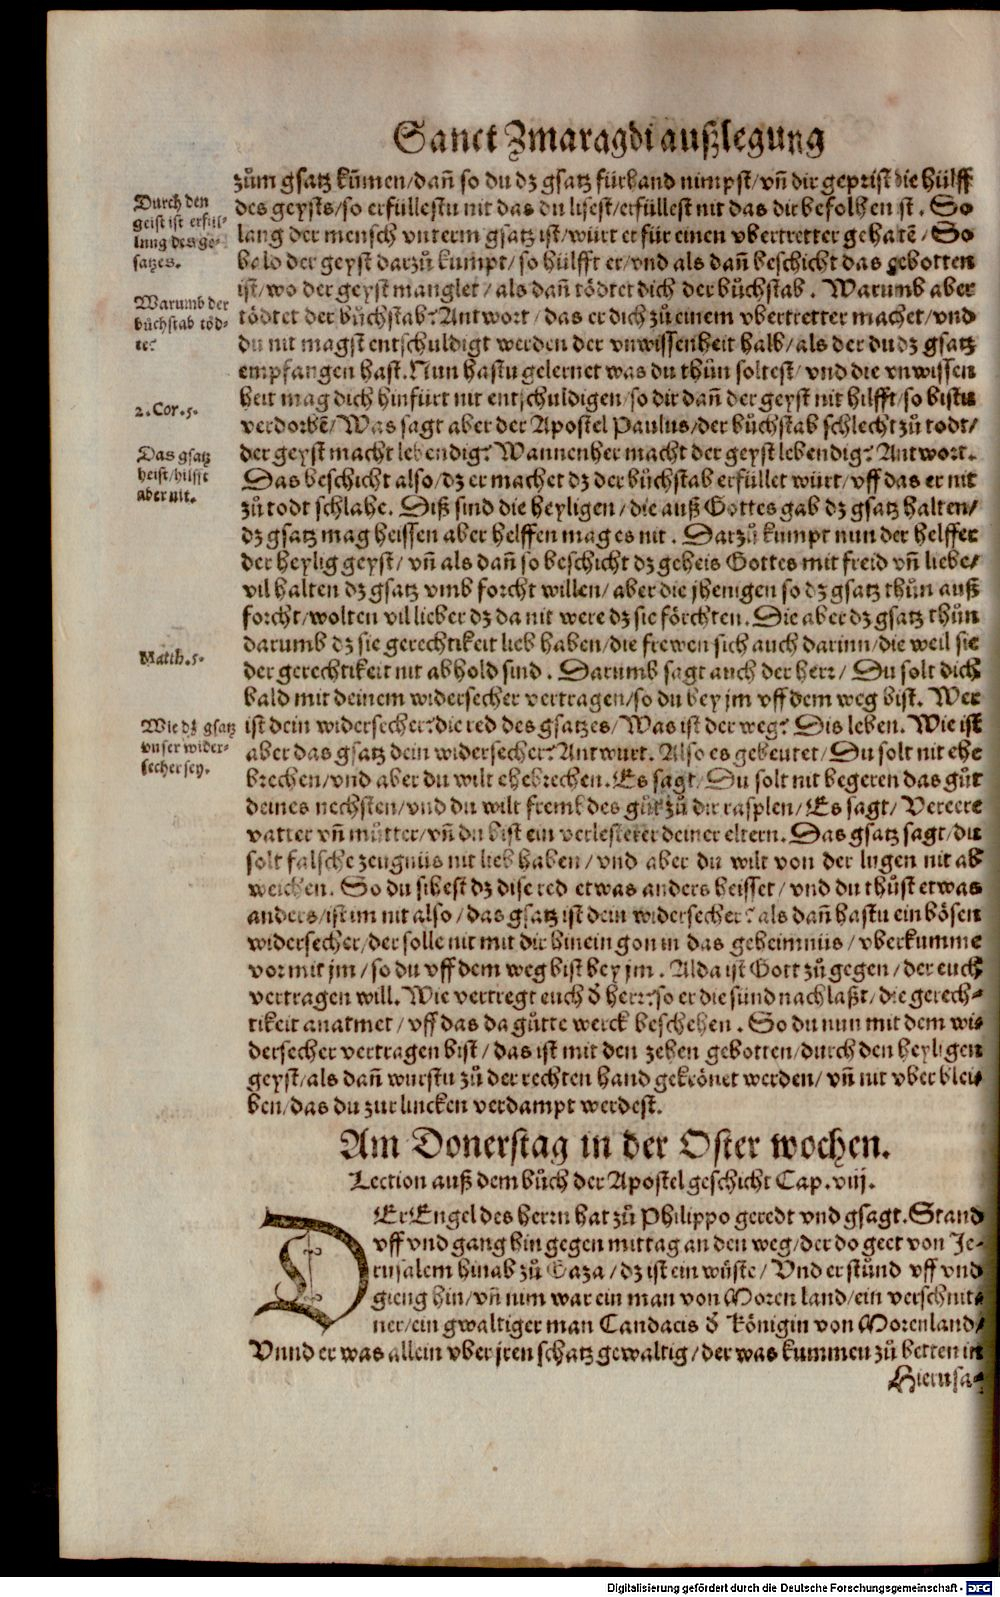 Sanct Zmaragdi außlegung
zům gsatz kum̃en/dañ so du dz gsatz fürhand nimpst/vñ dir geprist die hülff
des geysts/so erfüllestu nit das du lisest/erfüllest nit das dir befolhen ist. So
lang der mensch vnterm gsatz ist/würt er für einen vbertretter gehaltẽ/So
balo der geyst darzů kumpt/so hülfft er/vnd als dañ beschicht das gebotten
ist/wo der geyst manglet/als dañ tödtet dich der bůchstab. Warumb aber
tödtet der bůchstab? Antwort/das er dich zů einem vbertretter machet/vnd
du nit magst entschuldigt werden der vnwissenheit halb/als der du dz gsatz
empfangen hast. Nun hastu gelernet was du thůn soltest/vnd die vnwissen
heit mag dich hinfürt nit entschuldigen/so dir dañ der geyst nit hilfft/so bistu
verdorbẽ/Was sagt aber der Apostel Paulus/der bůchstab schlecht zů todt/
der geyst macht lebendig? Wannenher macht der geyst lebendig? Antwort.
Das beschicht also/dz er machet dz der bůchstab erfüllet würt/vff das er nit
zů todt schlahe. Diß sind die heyligen/die auß Gottes gab dz gsatz halten/
dz gsatz mag heissen aber helffen mag es nit. Darzů kumpt nun der helffer
der heylig geyst/vñ als dañ so beschicht dz geheis Gottes mit freid vñ liebe/
vil halten dz gsatz vmb forcht willen/aber die jhenigen so dz gsatz thůn auß
forcht/wolten vil lieber dz da nit were dz sie förchten. Die aber dz gsatz thůn
darumb dz sie gerechtikeit lieb haben/die frewen sich auch darinn/die weil sie
der gerechtikeit nit abhold sind. Darumb sagt auch der herr/Du solt dich
bald mit deinem widersecher vertragen/so du bey jm vff dem weg bist. Wer
ist dein widersecher? die red des gsatzes/Was ist der weg? Dis leben. Wie ist
aber das gsatz dein widersecher? Antwurt. Also es gebeutet/Du solt nit ehe
brechen/vnd aber du wilt ehebrechen. Es sagt/Du solt nit begeren das gůt
deines nechsten/vnd du wilt frembdes gůt zů dir rasplen/Es sagt/Vereere
vatter vñ můtter/vñ du bist ein verlesterer deiner eltern. Das gsatz sagt/du
solt falsche zeugnüs nit lieb haben/vnd aber du wilt von der lugen nit ab
weichen. So du sihest dz dise red etwas anders heisset/vnd du thůst etwas
anders/ist im nit also/das gsatz ist dein widersecher? als dañ hastu ein bösen
widersecher/der solle nit mit dir hinein gon in das geheimnüs/vberkumme
vor mit jm/so du vff dem weg bist bey jm. Alda ist Gott zů gegen/der euch
vertragen will. Wie vertregt euch ð herr? so er die sünd nachlaßt/die gerech-
tikeit anatmet/vff das da gůtte werck beschehen. So du nun mit dem wi-
dersecher vertragen bist/das ist mit den zehen gebotten/durch den heyligen
geyst/als dañ wurstu zů der rechten hand gekrönet werden/vñ nit vber blei-
ben/das du zur lincken verdampt werdest.
Durch den
geist ist erfül-
lung des ge-
satzes.
Warumb der
bůchstab töd-
te?
2. Cor. 5.
Das gsatz
heist/hilfft
aber nit.
Matth. 5.
Wie dz gsatz
vnser wider-
secher sey.
Am Donerstag in der Oster wochen.
Lection auß dem bůch der Apostel geschicht Cap. viij.
DEr Engel des herrn hat zů Philippo geredt vnd gsagt. Stand
vff vnd gang hin gegen mittag an den weg/der do geet von Je-
rusalem hinab zů Gaza/dz ist ein wüste/Vnd er stůnd vff vnd
gieng hin/vñ nim war ein man von Moren land/ein verschnit-
ner/ein gwaltiger man Candacis ð Königin von Morenland/
Vnnd er was allein vber jren schatz gewaltig/der was kummen zů betten in
Hierusa-
Digitalisierung gefördert durch die Deutsche Forschungsgemeinschaft - DFG